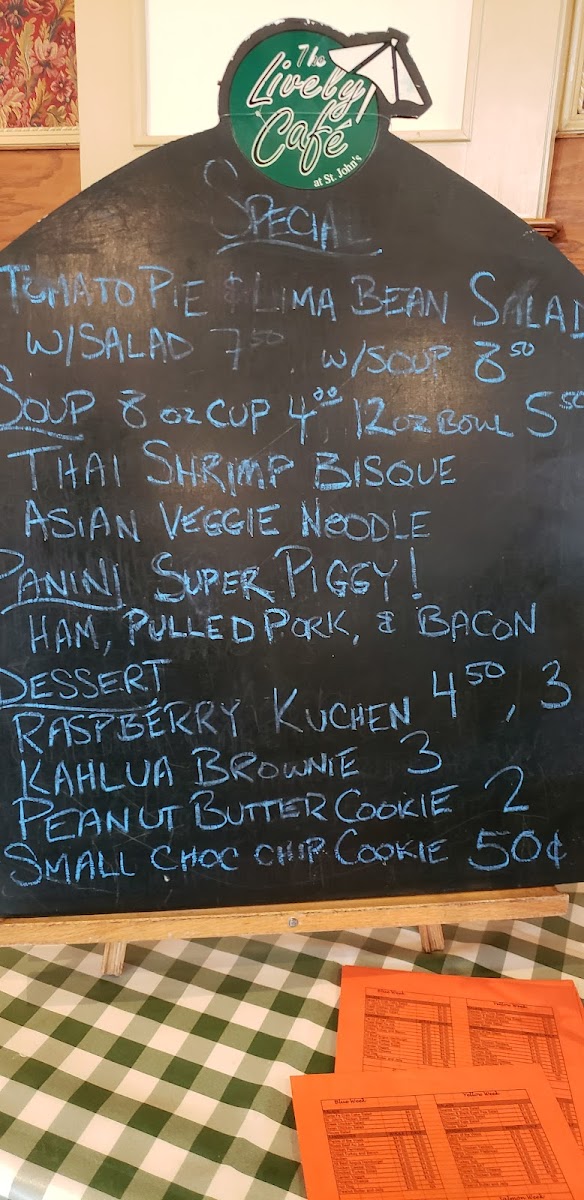 The
Lively
Café
at St. John's
SPECIAL
TOMATO PIE & LIMA BEAN SALAD
W/SALAD 7.50, W/SOUP 8.50
SOUP 8 OZ CUP 4.00 12 OZ BOWL 5.50
THAI SHRIMP BISQUE
ASIAN VEGGIE NOODLE
PANINI SUPER PIGGY!
HAM, PULLED PORK, & BACON
DESSERT
RASPBERRY KUCHEN 4.50, 3
KAHLUA BROWNIE 3
PEANUT BUTTER COOKIE 2
SMALL CHOC CHIP COOKIE 50¢
Blue Week
Yellow Week
Blue Week
Yellow Week